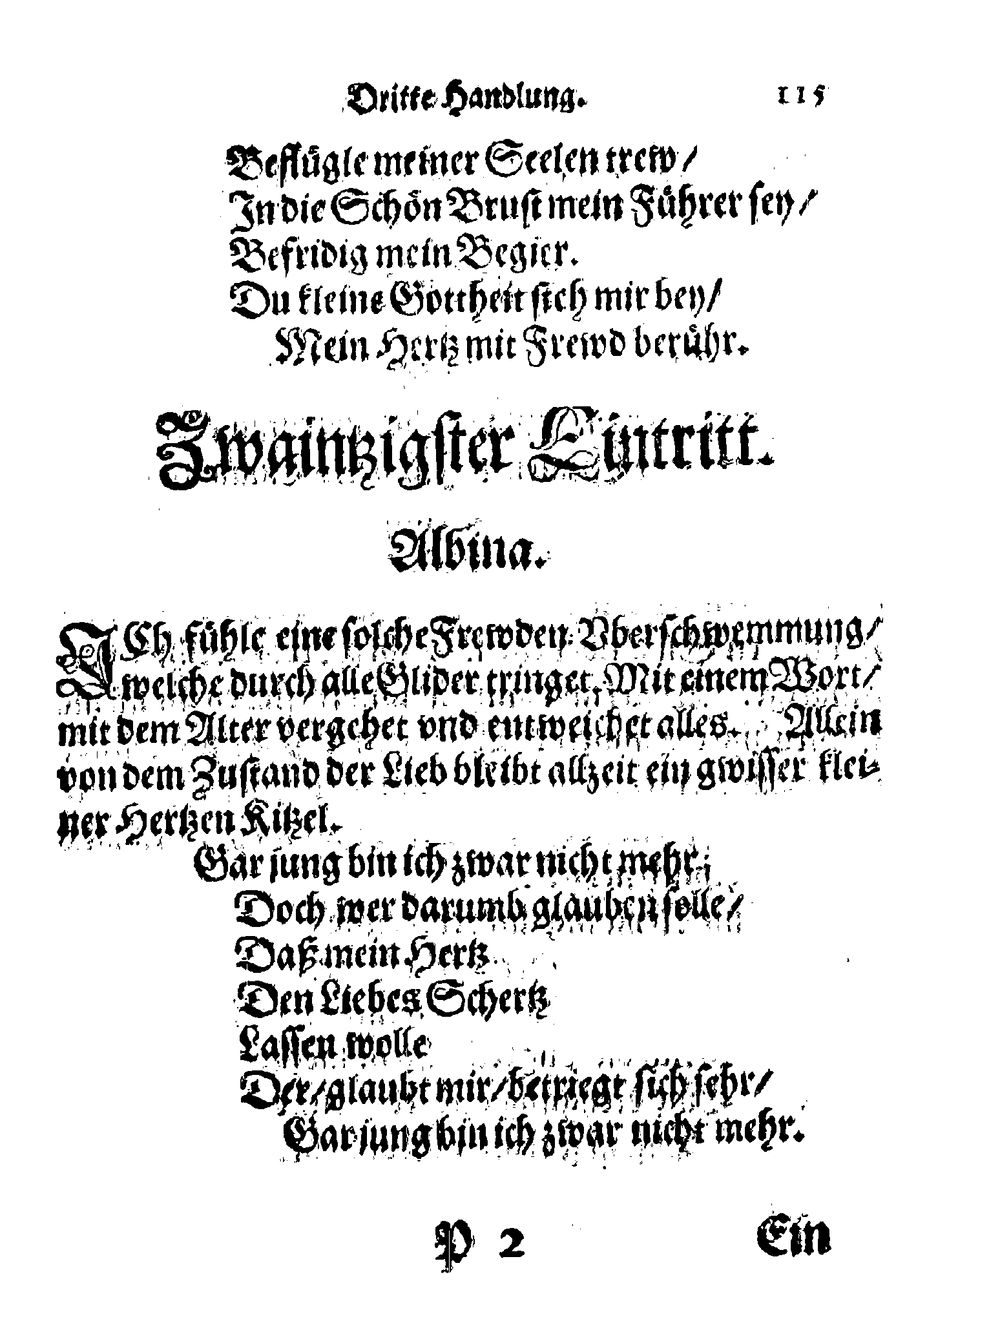 Dritte Handlung. 115
Beflügle meiner Seelen trew/
In die Schön Brust mein Führer sey/
Befridig mein Begier.
Du kleine Gottheit steh mir bey/
Mein Hertz mit Frewd berühr.
Zwaintzigster Eintritt.
Albina.
ICh fühle eine solche Frewden Vberschwemmung/
welche durch alle Glider tringet. Mit einem Wort/
mit dem Alter vergehet vnd entweichet alles. Allein
von dem Zustand der Lieb bleibt allzeit ein gwisser klei-
ner Hertzen Kitzel.
Gar jung bin ich zwar nicht mehr;
Doch wer darumb glauben solle/
Daß mein Hertz
Den Liebes Schertz
Lassen wolle
Der/glaubt mir/betriegt sich sehr/
Gar jung bin ich zwar nicht mehr.
P 2 Ein